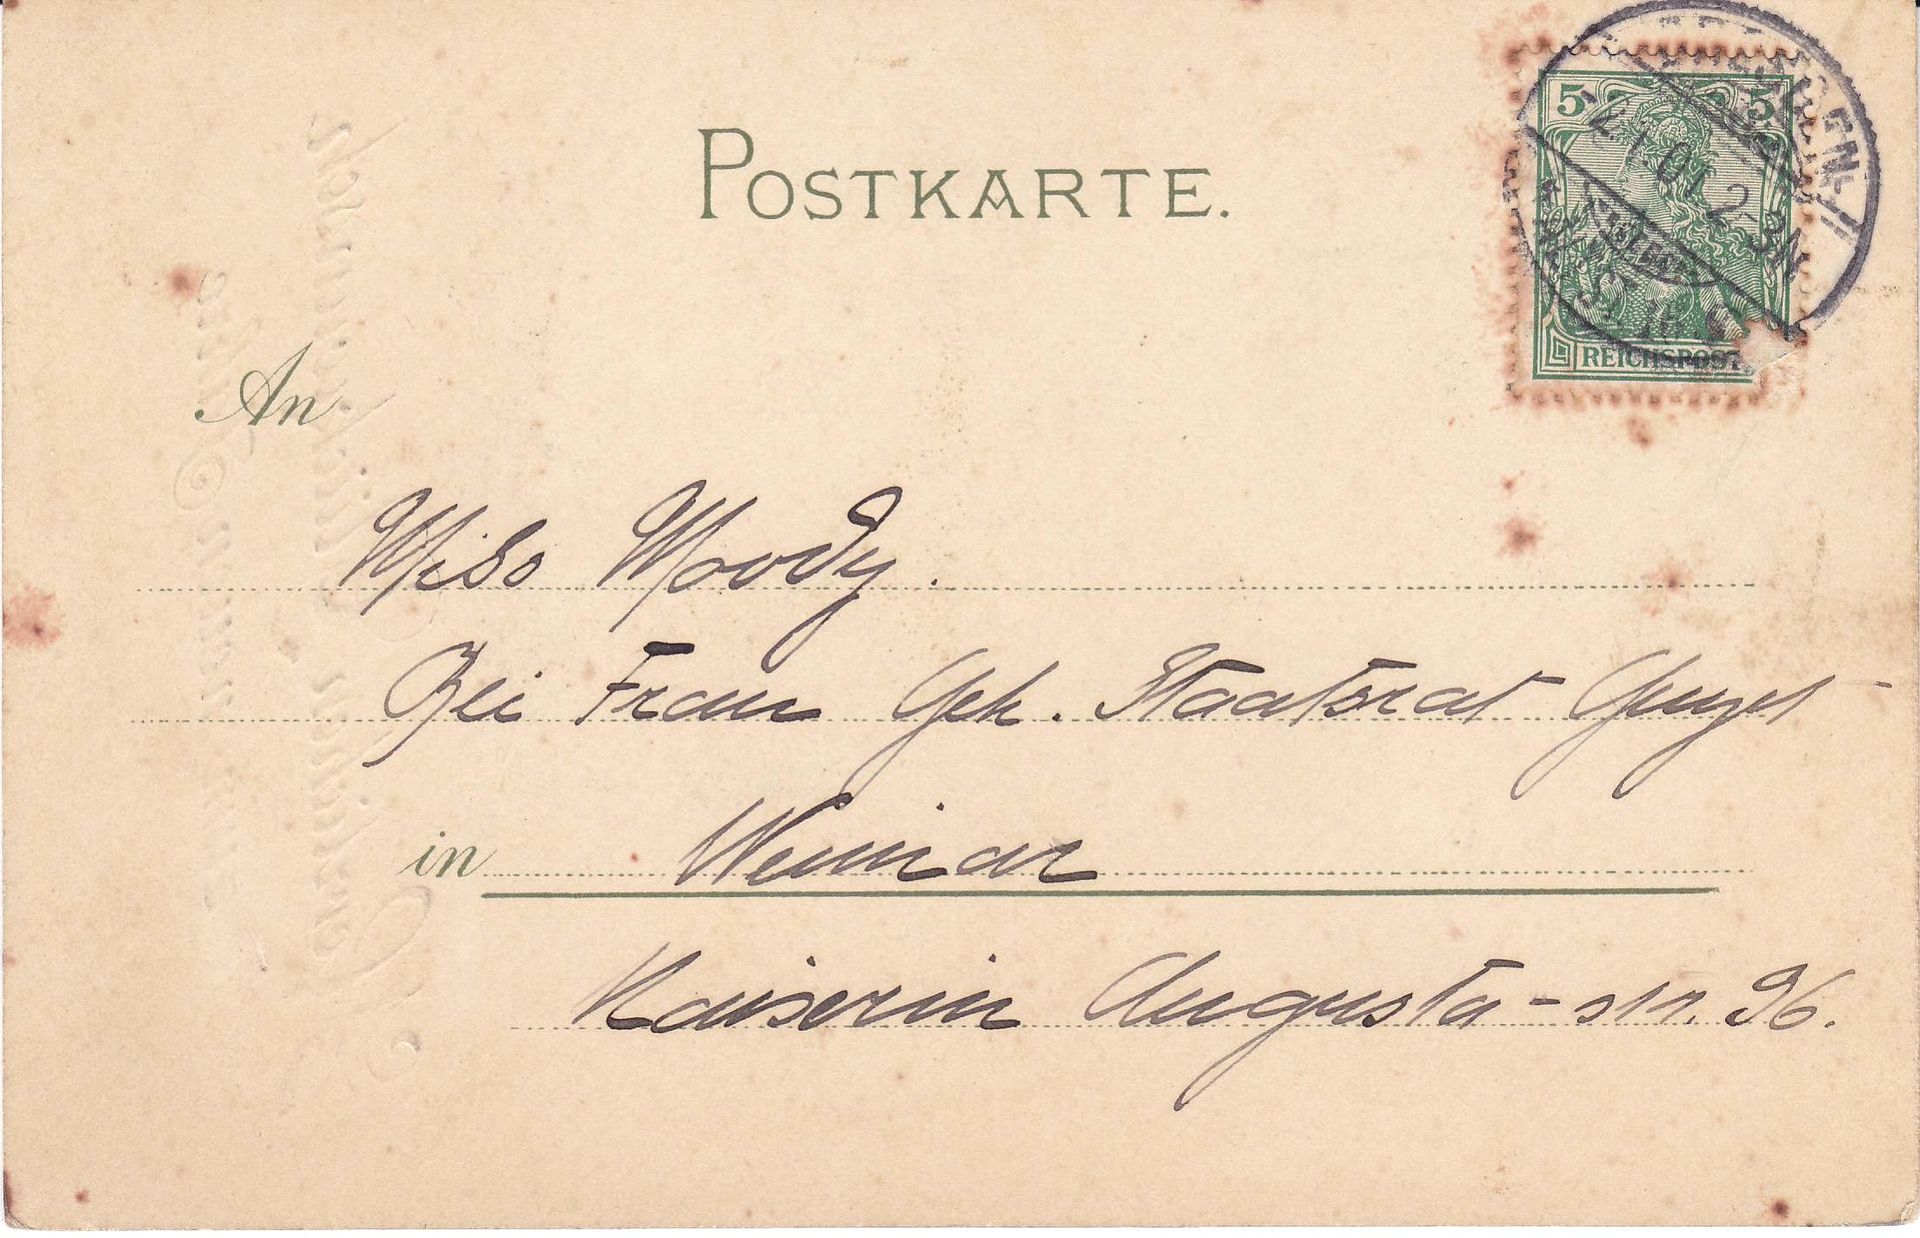 POSTKARTE.
5 5
2.1.01. 2-3N.
REICHSPOST
An
Miss Moody.
Bei Frau Geh. Staatsrat
in Weimar
Kaiserin Augusta-str. 26.